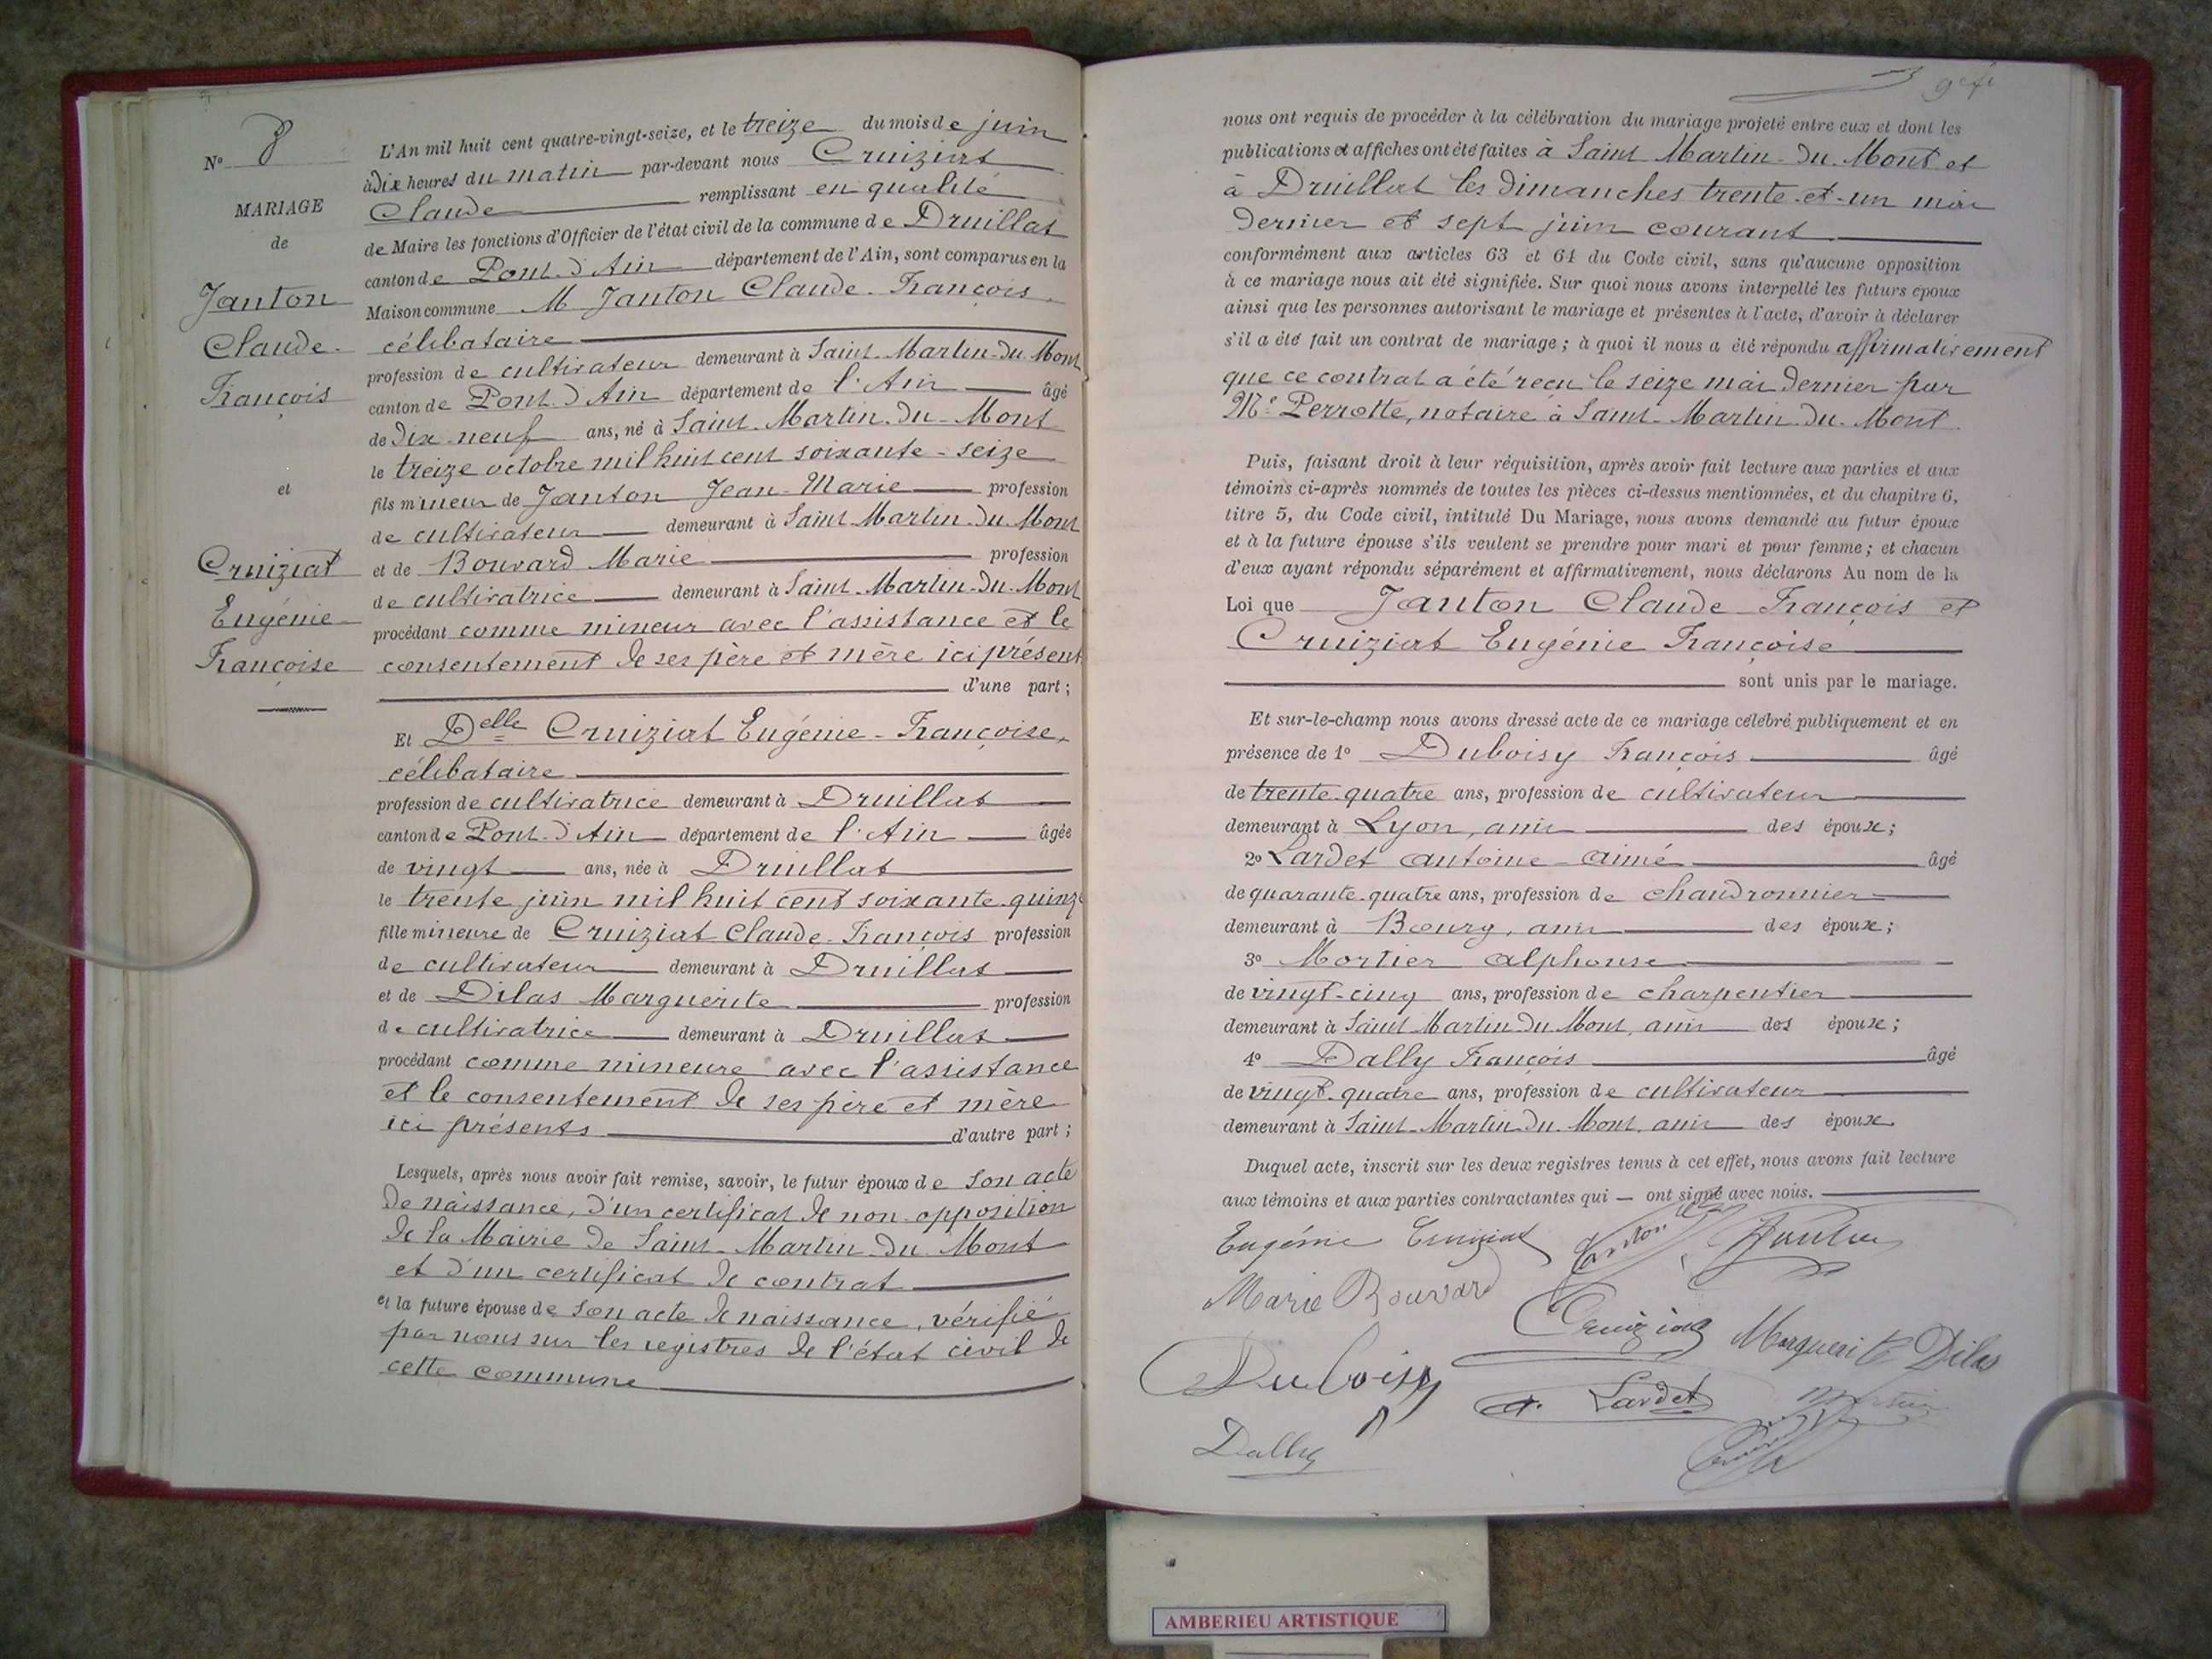 N° 8
MARIAGE
de
Janton
Claude-
François
et
Cruiziat
Eugénie-
Françoise
L'An mil huit cent quatre-vingt-seize, et le treize du mois de juin
à dix heures du matin par-devant nous Cruiziat
Claude remplissant en qualité
de Maire les fonctions d'Officier de l'état civil de la commune de Druillat
canton de Pont-d'Ain département de l'Ain, sont comparus en la
Maison commune M Janton Claude-François,
célibataire
profession de cultivateur demeurant à Saint-Martin-du-Mont
canton de Pont-d'Ain département de l'Ain âgé
de dix-neuf ans, né à Saint-Martin-du-Mont
le treize octobre mil huit cent soixante-seize
fils mineur de Janton Jean-Marie profession
de cultivateur demeurant à Saint-Martin-du-Mont
et de Bouvard Marie profession
de cultivatrice demeurant à Saint-Martin-du-Mont
procédant comme mineur avec l'assistance et le
consentement de ses père et mère ici présents
d'une part;
Et Delle Cruiziat Eugénie-Françoise,
célibataire
profession de cultivatrice demeurant à Druillat
canton de Pont-d'Ain département de l'Ain âgée
de vingt ans, née à Druillat
le trente juin mil huit cent soixante-quinze
fille mineure de Cruiziat Claude-François profession
de cultivateur demeurant à Druillat
et de Dilas Marguerite profession
de cultivatrice demeurant à Druillat
procédant comme mineure avec l'assistance
et le consentement de ses père et mère
ici présents d'autre part;
Lesquels, après nous avoir fait remise, savoir, le futur époux de son acte
de naissance, d'un certificat de non-opposition
de la Mairie de Saint-Martin-du-Mont
et d'un certificat de contrat
et la future épouse de son acte de naissance, vérifié
par nous sur les registres de l'état civil de
cette commune
nous ont requis de procéder à la célébration du mariage projeté entre eux et dont les
publications et affiches ont été faites à Saint-Martin-du-Mont et
à Druillat les dimanches trente-et-un mai
dernier et sept juin courant
conformément aux articles 63 et 64 du Code civil, sans qu'aucune opposition
à ce mariage nous ait été signifiée. Sur quoi nous avons interpellé les futurs époux
ainsi que les personnes autorisant le mariage et présentes à l'acte, d'avoir à déclarer
s'il a été fait un contrat de mariage; à quoi il nous a été répondu affirmativement
que ce contrat a été reçu le seize mai dernier par
Me Perrotte, notaire à Saint-Martin-du-Mont.
Puis, faisant droit à leur réquisition, après avoir fait lecture aux parties et aux
témoins ci-après nommés de toutes les pièces ci-dessus mentionnées, et du chapitre 6,
titre 5, du Code civil, intitulé Du Mariage, nous avons demandé au futur époux
et à la future épouse s'ils veulent se prendre pour mari et pour femme; et chacun
d'eux ayant répondu séparément et affirmativement, nous déclarons Au nom de la
Loi que Janton Claude-François et
Cruiziat Eugénie Françoise
sont unis par le mariage.
Et sur-le-champ nous avons dressé acte de ce mariage célébré publiquement et en
présence de 1° Duboisy François âgé
de trente-quatre ans, profession de cultivateur
demeurant à Lyon, ami des époux;
2° Lardet Antoine-Aimé âgé
de quarante-quatre ans, profession de chaudronnier
demeurant à Bourg, ami des époux;
3° Mortier Alphonse
de vingt-cinq ans, profession de charpentier
demeurant à Saint-Martin-du-Mont, ami des époux;
4° Dally François âgé
de vingt-quatre ans, profession de cultivateur
demeurant à Saint-Martin-du-Mont, ami des époux
Duquel acte, inscrit sur les deux registres tenus à cet effet, nous avons fait lecture
aux témoins et aux parties contractantes qui — ont signé avec nous.
Eugénie Cruiziat Janton Janton
Marie Bouvard
Cruiziat Marguerite Dilas
Duboisy
A. Lardet Mortier
Dally
AMBERIEU ARTISTIQUE